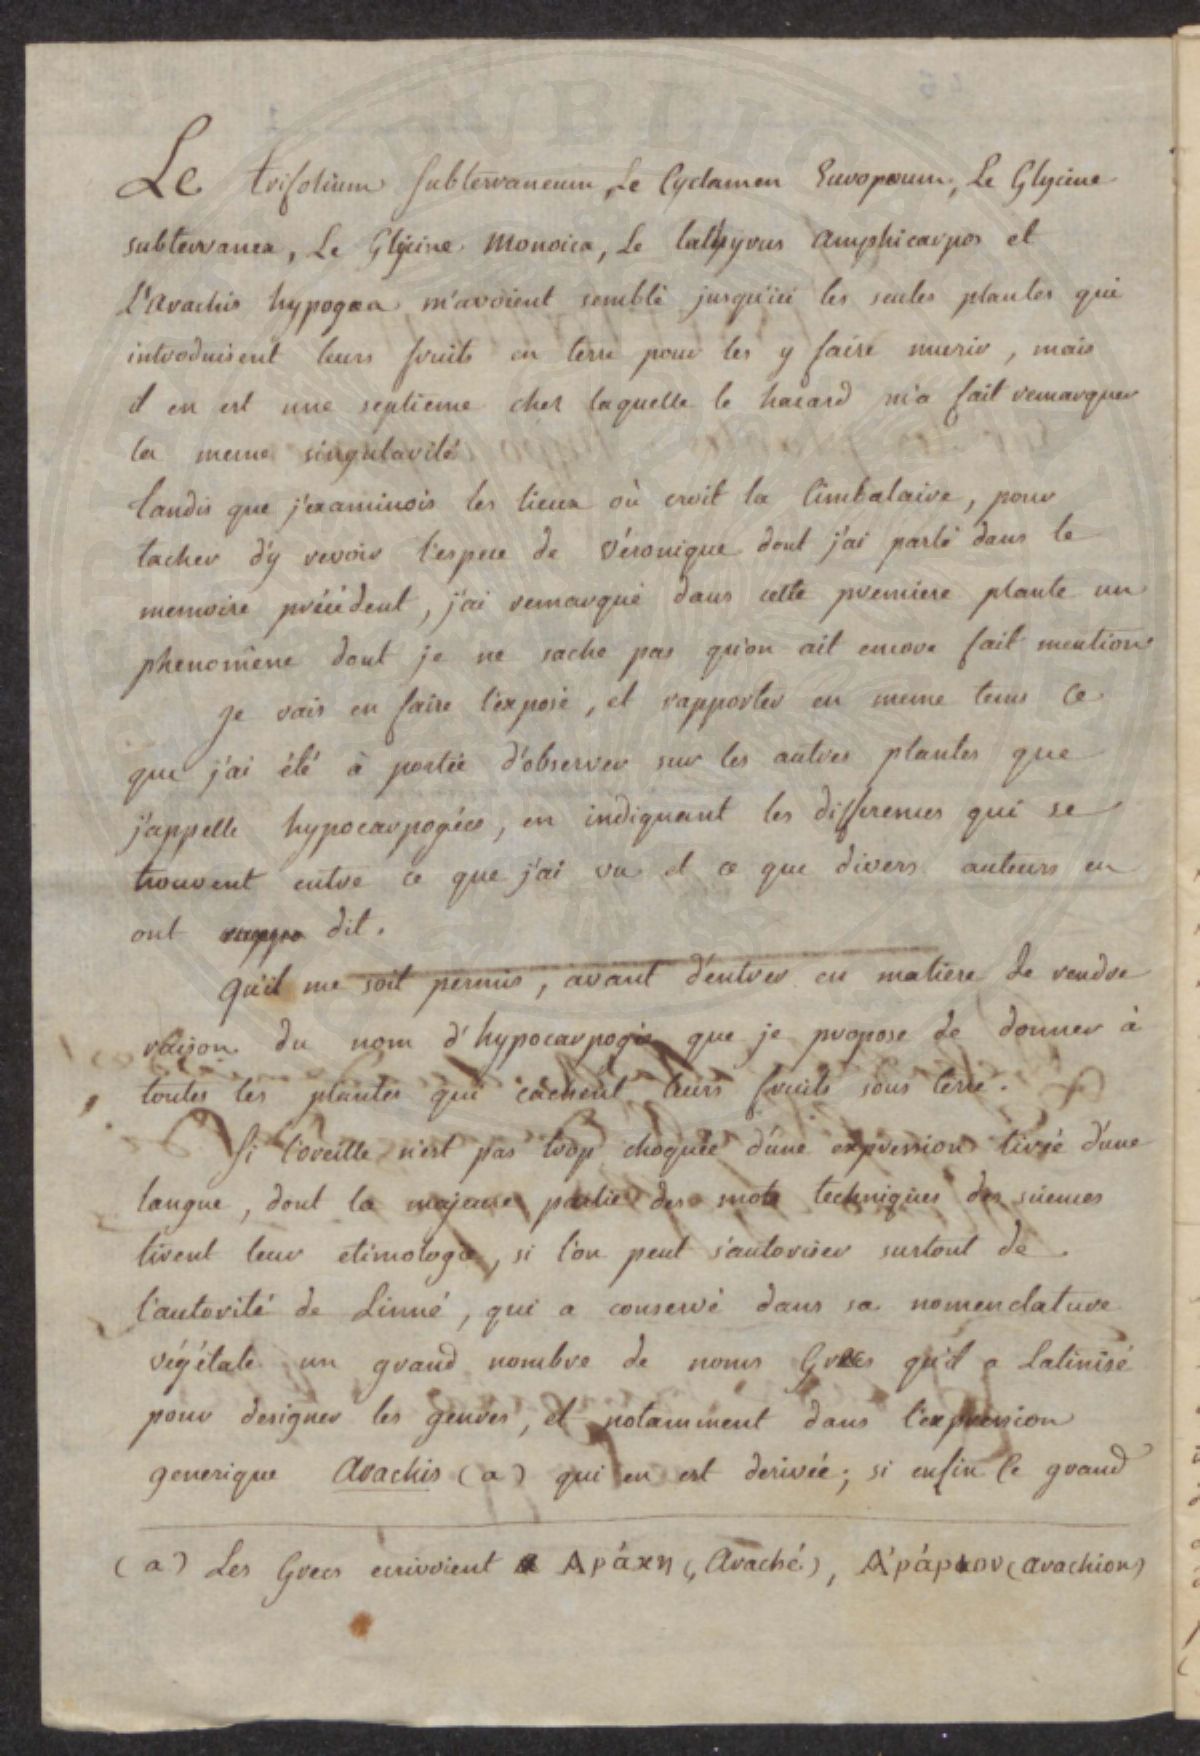 Le trifolium subterraneum, Le Cyclamen Europœum, Le Glycine
subterranea, Le Glycine Monoica, Le lathyrus amphicarpos et
L'Arachis hypogœa m'avoient semblé jusqu'ici les seules plantes qui
introduisent leurs fruits en terre pour les y faire murir, mais
il en est une septieme chez laquelle le hazard m'a fait remarquer
la meme singularité
tandis que j'examinois les lieux où croit la Cimbalaire, pour
tacher d'y revoir l'espece de Véronique dont j'ai parlé dans le
memoire précédent, j'ai remarqué dans cette premiere plante un
phenomène dont je ne sache pas qu'on ait encore fait mention
Je vais en faire l'exposé, et rapporter en meme tems ce
que j'ai été à portée d'observer sur les autres plantes que
j'appelle hypocarpogées, en indiquant les differences qui se
trouvent entre ce que j'ai vu et ce que divers auteurs en
ont rappo dit.
Qu'il me soit permis, avant d'entrer en matiere de rendre
raison du nom d'hypocarpogée que je propose de donner à
toutes les plantes qui cachent leurs fruits sous terre.
Si l'oreille n'est pas trop choquée d'une expression tirée d'une
langue, dont la majeure partie des mots techniques des sciences
tirent leur etimologie, si l'on peut s'autoriser surtout de
l'autorité de Linné, qui a conservé dans sa nomenclature
végétale un grand nombre de noms Grecs qu'il a Latinisé
pour designer les genres, et notamment dans l'expression
generique Arachis (a) qui en est derivée; si enfin ce grand
(a) Les Grecs ecrivoient Αράχη (Araché), Α'ράχιον (arachion)